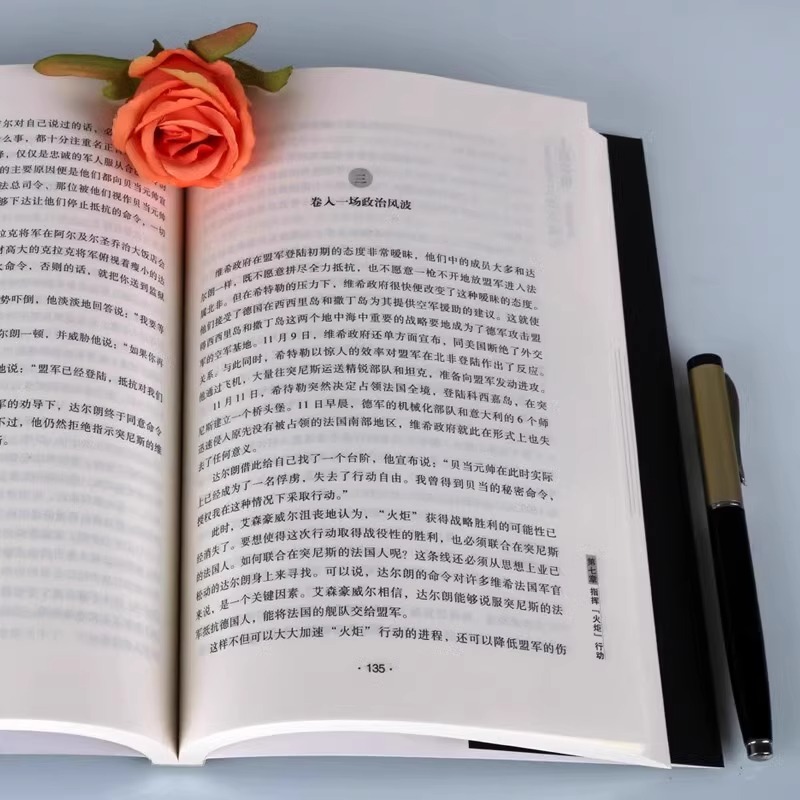 尔对自己说过的话，
么事，都十分注重名正
择，仅仅是忠诚的军人服从
的主要原因便是他们都向贝当元帅宣
法总司令、那位被他们视作贝当元帅
够下达让他们停止抵抗的命令，一切
克拉克将军在阿尔及尔圣乔治大饭店会
材高大的克拉克将军俯视着瘦小的达
大命令，否则的话，就把你送到监狱
势吓倒，他淡淡地回答说：“我要等
尔朗一顿，并威胁他说：“如果你再
他说：“盟军已经登陆，抵抗对我们
军的劝导下，达尔朗终于同意命令
不过，他仍然拒绝指示突尼斯的维
斯。
三
卷入一场政治风波
维希政府在盟军登陆初期的态度非常暧昧，他们中的成员大多和达
尔朗一样，既不愿意拼尽全力抵抗，也不愿意一枪不开地放盟军进入法
属北非。但在希特勒的压力下，维希政府很快便改变了这种暧昧的态度。
他们接受了德国在西西里岛和撒丁岛为其提供空军援助的建议。这就使
得西西里岛和撒丁岛这两个地中海中重要的战略要地成为了德军攻击盟
军的空军基地。11月9日，维希政府还单方面宣布，同美国断绝了外交
关系。与此同时，希特勒以惊人的效率对盟军在北非登陆作出了反应。
他通过飞机，大量往突尼斯运送精锐部队和坦克，准备向盟军发动进攻。
11月11日，希特勒突然决定占领法国全境，登陆科西嘉岛，在突
尼斯建立一个桥头堡。11日早晨，德军的机械化部队和意大利的6个师
迅速侵入原先没有被占领的法国南部地区，维希政府就此在形式上也失
去了任何意义。
达尔朗借此给自己找了一个台阶，他宣布说：“贝当元帅在此时实际
上已经成为了一名俘虏，失去了行动自由。我曾得到贝当的秘密命令，
授权我在这种情况下采取行动。”
此时，艾森豪威尔沮丧地认为，“火炬”获得战略胜利的可能性已
经消失了。要想使得这次行动取得战役性的胜利，也必须联合在突尼斯
的法国人。如何联合在突尼斯的法国人呢？这条线还必须从思想上业已
松动的达尔朗身上来寻找。可以说，达尔朗的命令对许多维希法国军官
来说，是一个关键因素。艾森豪威尔相信，达尔朗能够说服突尼斯的法
军抵抗德国人，能将法国的舰队交给盟军。
这样不但可以大大加速“火炬”行动的进程，还可以降低盟军的伤
第七章 指挥“火炬”行动
·135·